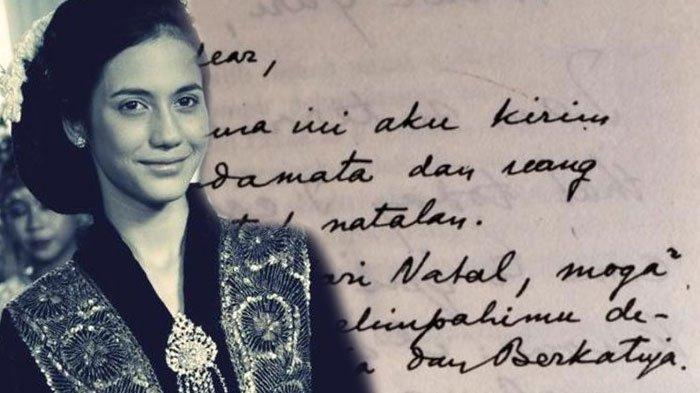 ear,
ma ini aku kirim
damata dan uang
natalan.
ari Natal, moga²
limpahimu de-
dan Berkatnja.